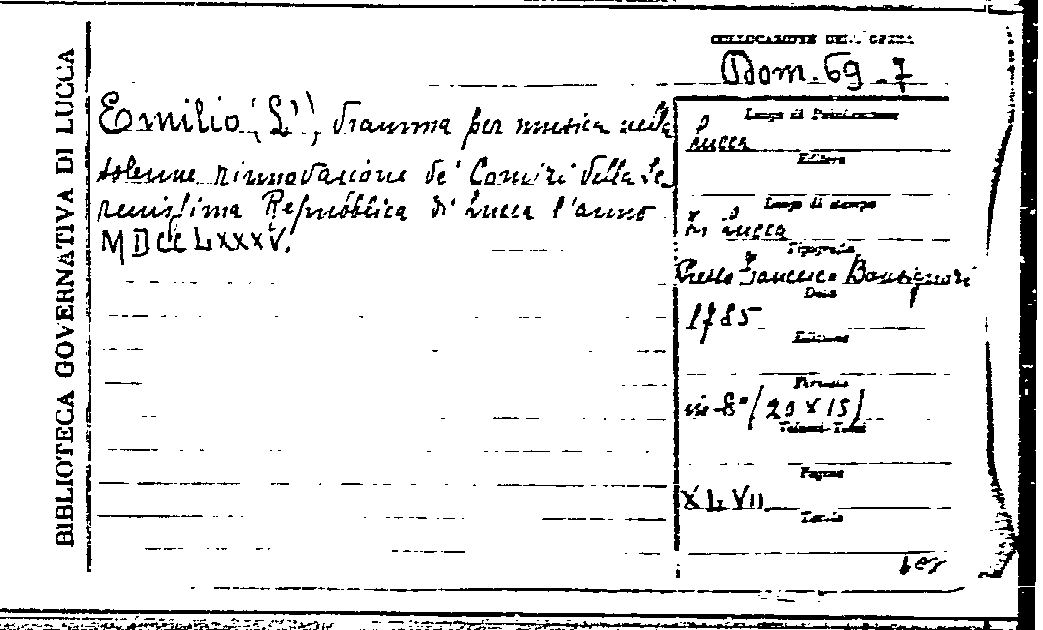 BIBLIOTECA GOVERNATIVA DI LUCCA
COLLOCAZIONE DELL'OPERA
Dom. 69-7
Emilio (L'), dramma per musica nella
solenne rinnovazione de' Comizi della Se-
renissima Repubblica di Lucca l'anno
MDCCLXXXV.
Luogo di Pubblicazione
Lucca
Editore
Luogo di stampa
In Lucca
Tipografia
Presso Francesco Bonsignori
Data
1785
Edizione
Formato
in-8° (20 x 15)
Pagine
XLVII
Tavole